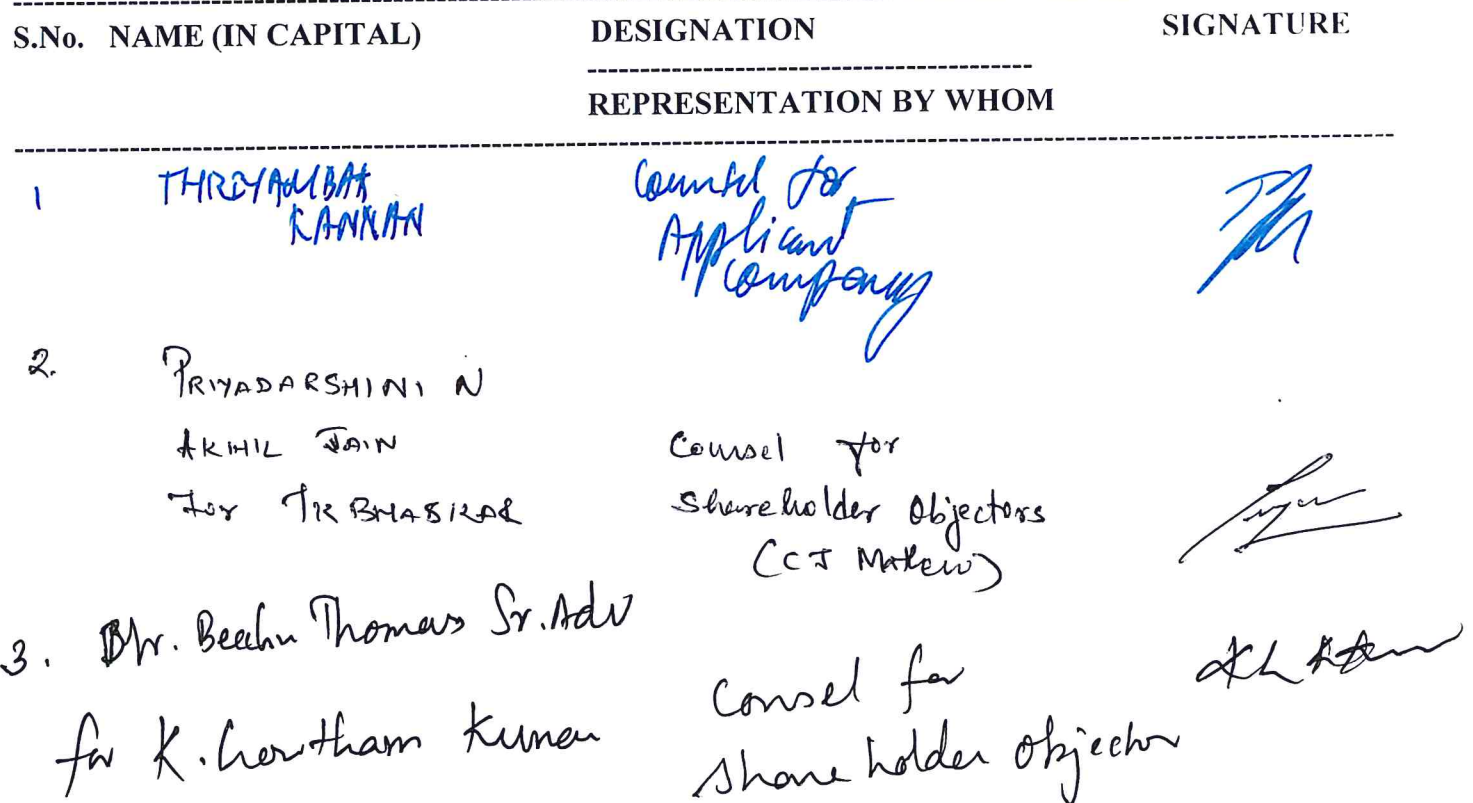 S.No. NAME (IN CAPITAL) DESIGNATION SIGNATURE
REPRESENTATION BY WHOM
1 THRIYAMBAK Counsel for
KANNAN Applicant
Company
2. PRIYADARSHINI N
AKHIL JAIN Counsel for
For TK BHASKAR Shareholder Objectors
(CJ Mathew)
3. Thomas Sr. Adv
for K. Gowtham Kumar Consel for
Share holder Objector